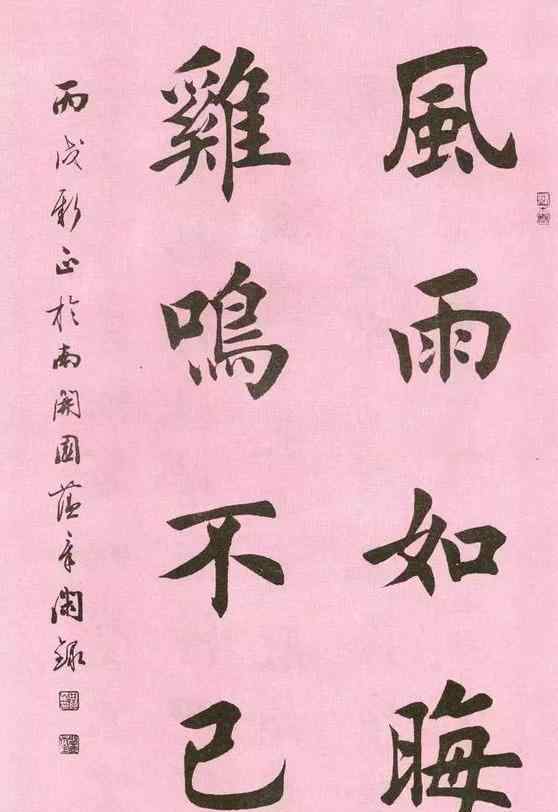 風雨如晦
雞鳴不已
丙戌新正於南開園蕴章閣錄